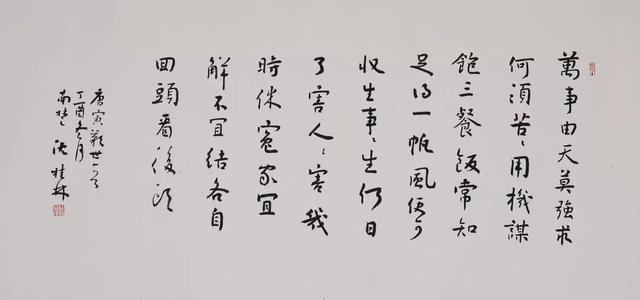 萬事由天莫強求
何須苦〻用機謀
飽三餐飯常知
足得一帆風便可
收生事〻生何日
了害人〻害幾
時休冤家宜
解不宜結各自
回頭看後頭
唐寅歎世一首
丁酉冬月
南 桂林